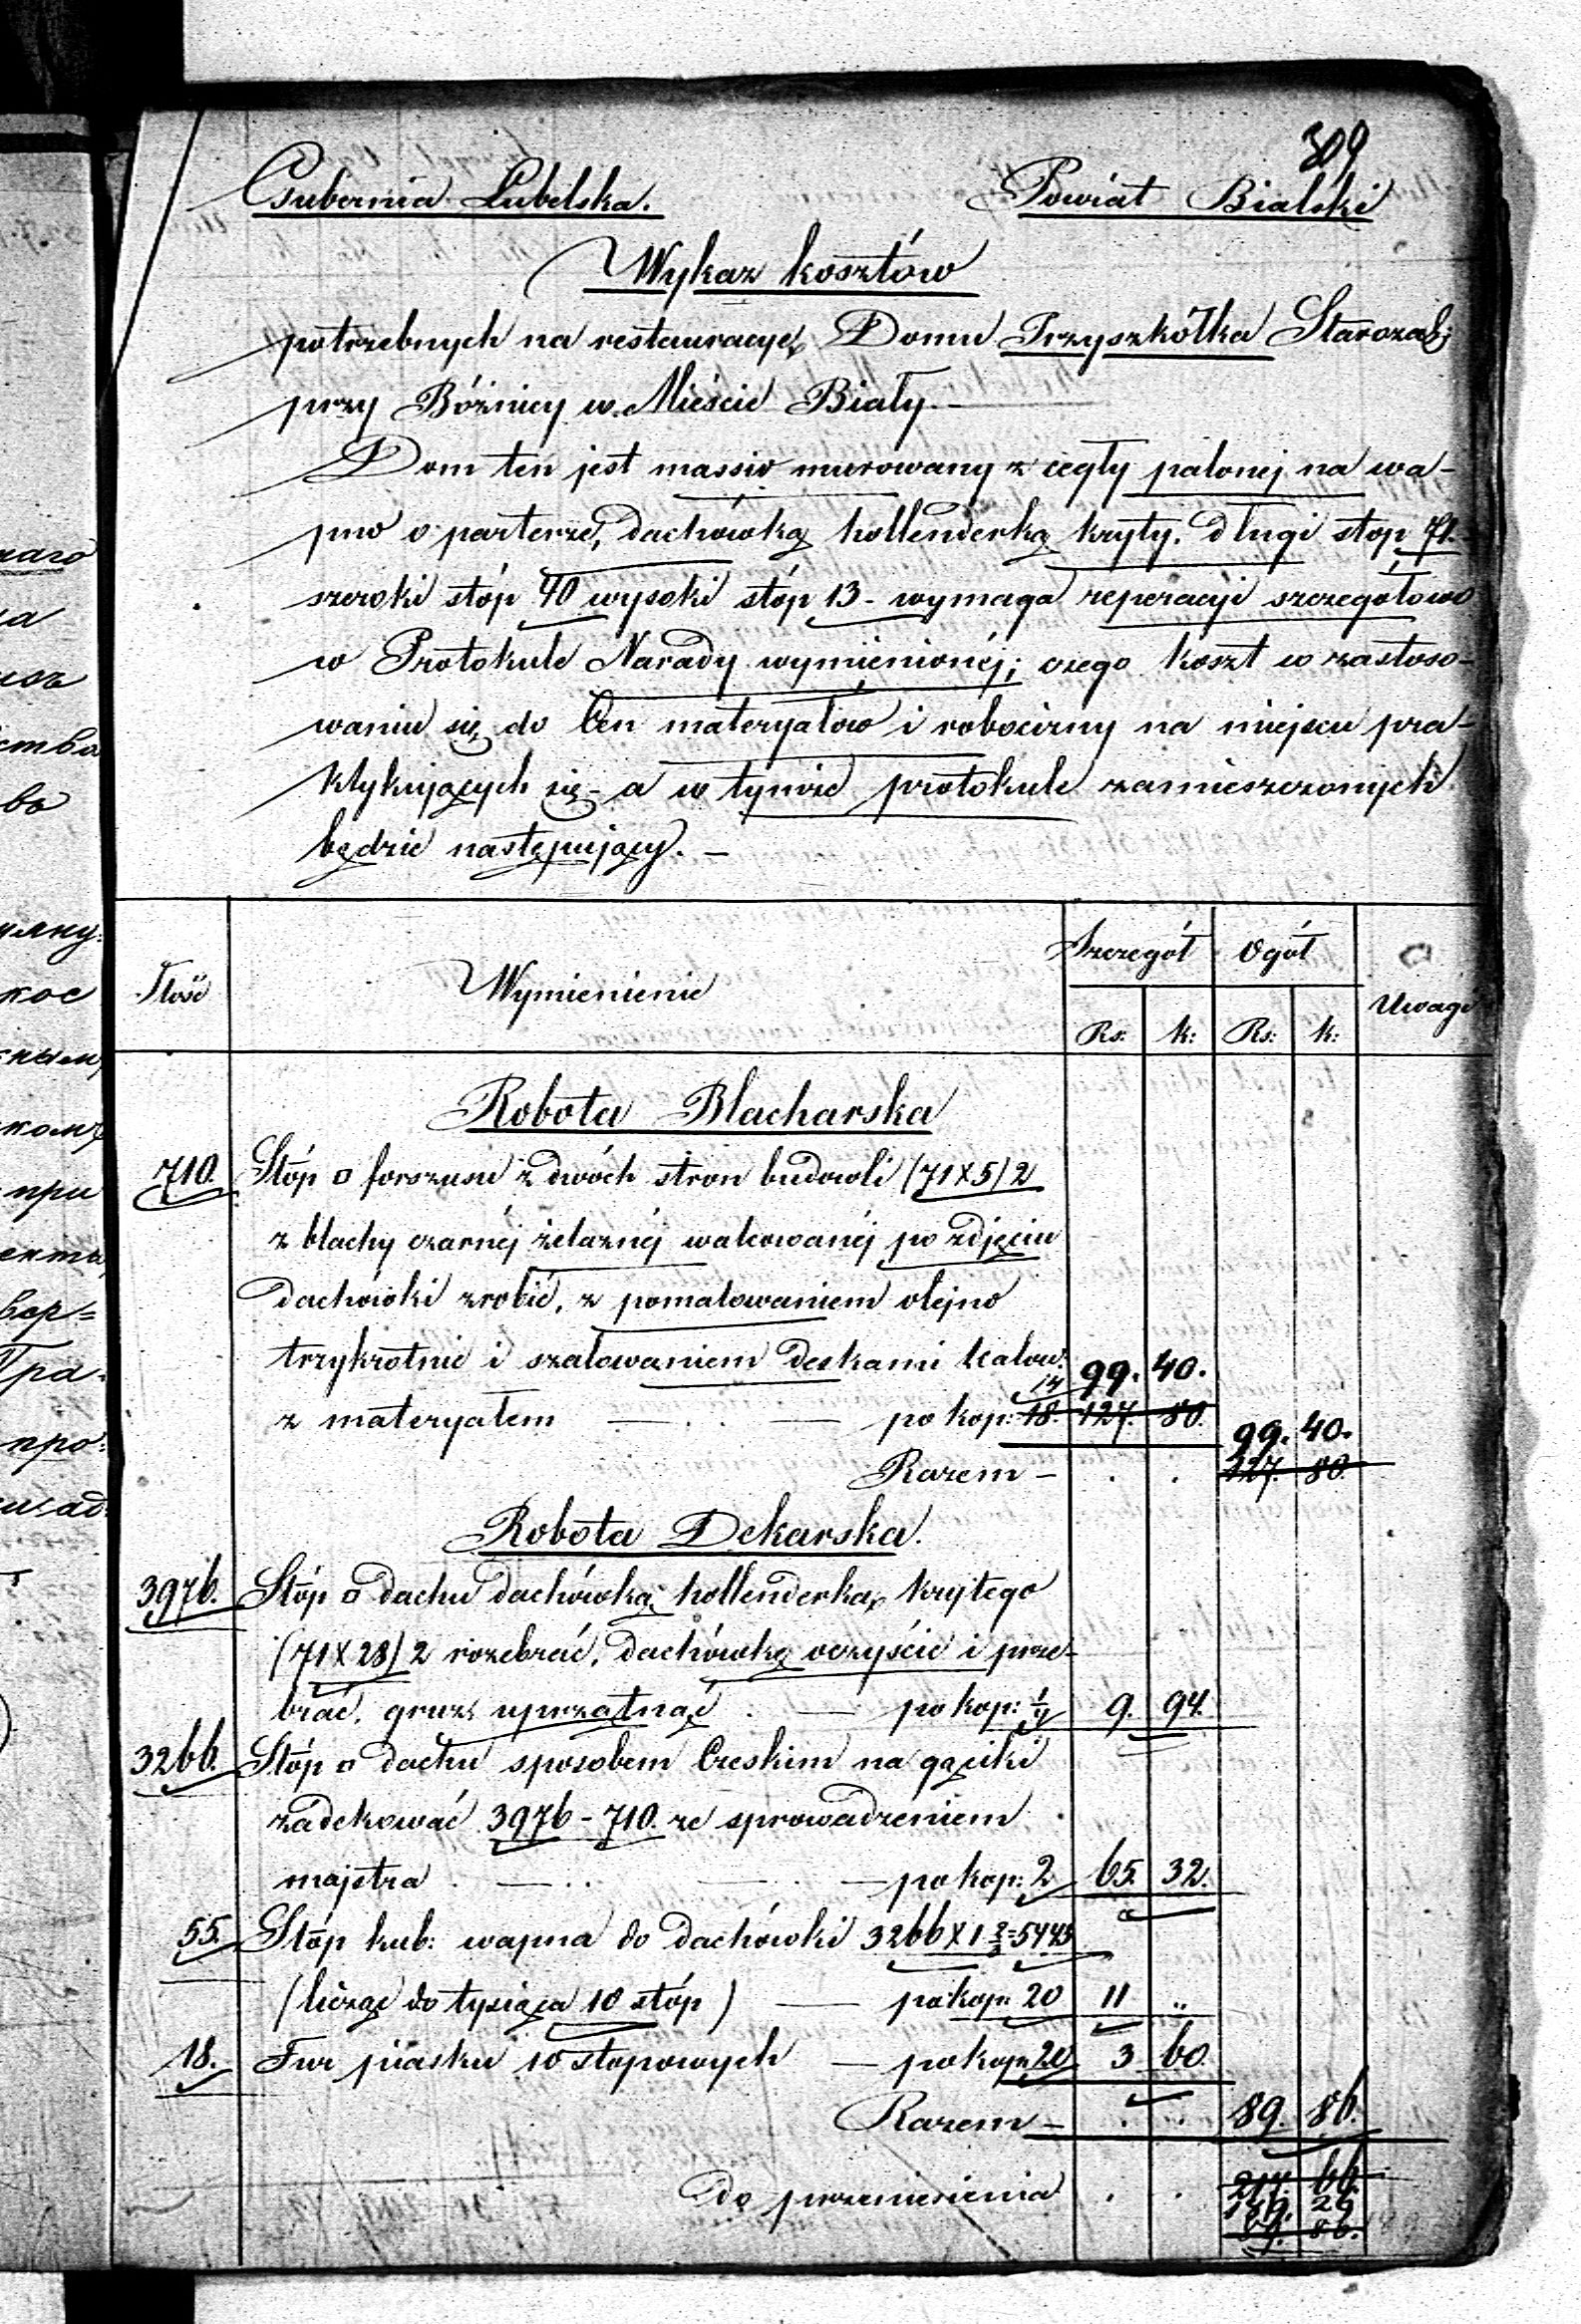 309
Gubernia Lubelska. Powiat Bialski
Wykaz kosztów
potrzebnych na restauracyę Domu Przyszkółka Starozak:
przy Bóźnicy w Mieście Biały.—
Dom ten jest massiv murowany z cegły palonej na wa-
pno o parterze, dachówką hollenderką kryty. długi stóp 71.
szeroki stóp 40 wysoki stóp 13 - wymaga reperacyi szczegółowo
w Protokule Narady wymienionéj; czego koszt w zastoso-
waniu się do Cen materyałów i robocizny na miejscu pra-
ktykujących się - a w tymże protokule zamieszczonych
będzie następujący. —
Ilość Wymienienie Szczegół Ogół Uwagi
Rs: k: Rs: k:
Robota Blacharska
710. Stóp □ forszusu z dwóch stron budowli (71X5)2
z blachy czarnéj żelaznéj walcowanéj po zdjęciu
dachówki zrobić, z pomalowaniem olejno
trzykrotnie i szalowaniem deskami calow: 99. 40.
14
z materyałem — po kop: 18. 127. 80. 99. 40.
Razem — . . 127. 80.
Robota Dekarska.
3976. Stóp □ dachu dachówką hollenderką krytego
(71X28)2 rozebrać, dachówkę oczyścić i prze-
brać, gruz uprzątnąć . — po kop: 1/4 9. 94.
3266. Stóp □ dachu sposobem Czeskim na gąciki
zadekować 3976 - 710. ze sprowadzeniem
majstra . — . . — . — po kop: 2 65. 32.
55. Stóp kub: wapna do dachówki 3266 X 1 2/3 = 5443
(licząc do tysiąca 10 stóp) — po kop: 20 11 „
18. Fur piasku 10 stopowych — po kop: 20 3 60.
Razem — . . 89. 86.
do przeniesienia . . 217. 66.
189. 26
86.